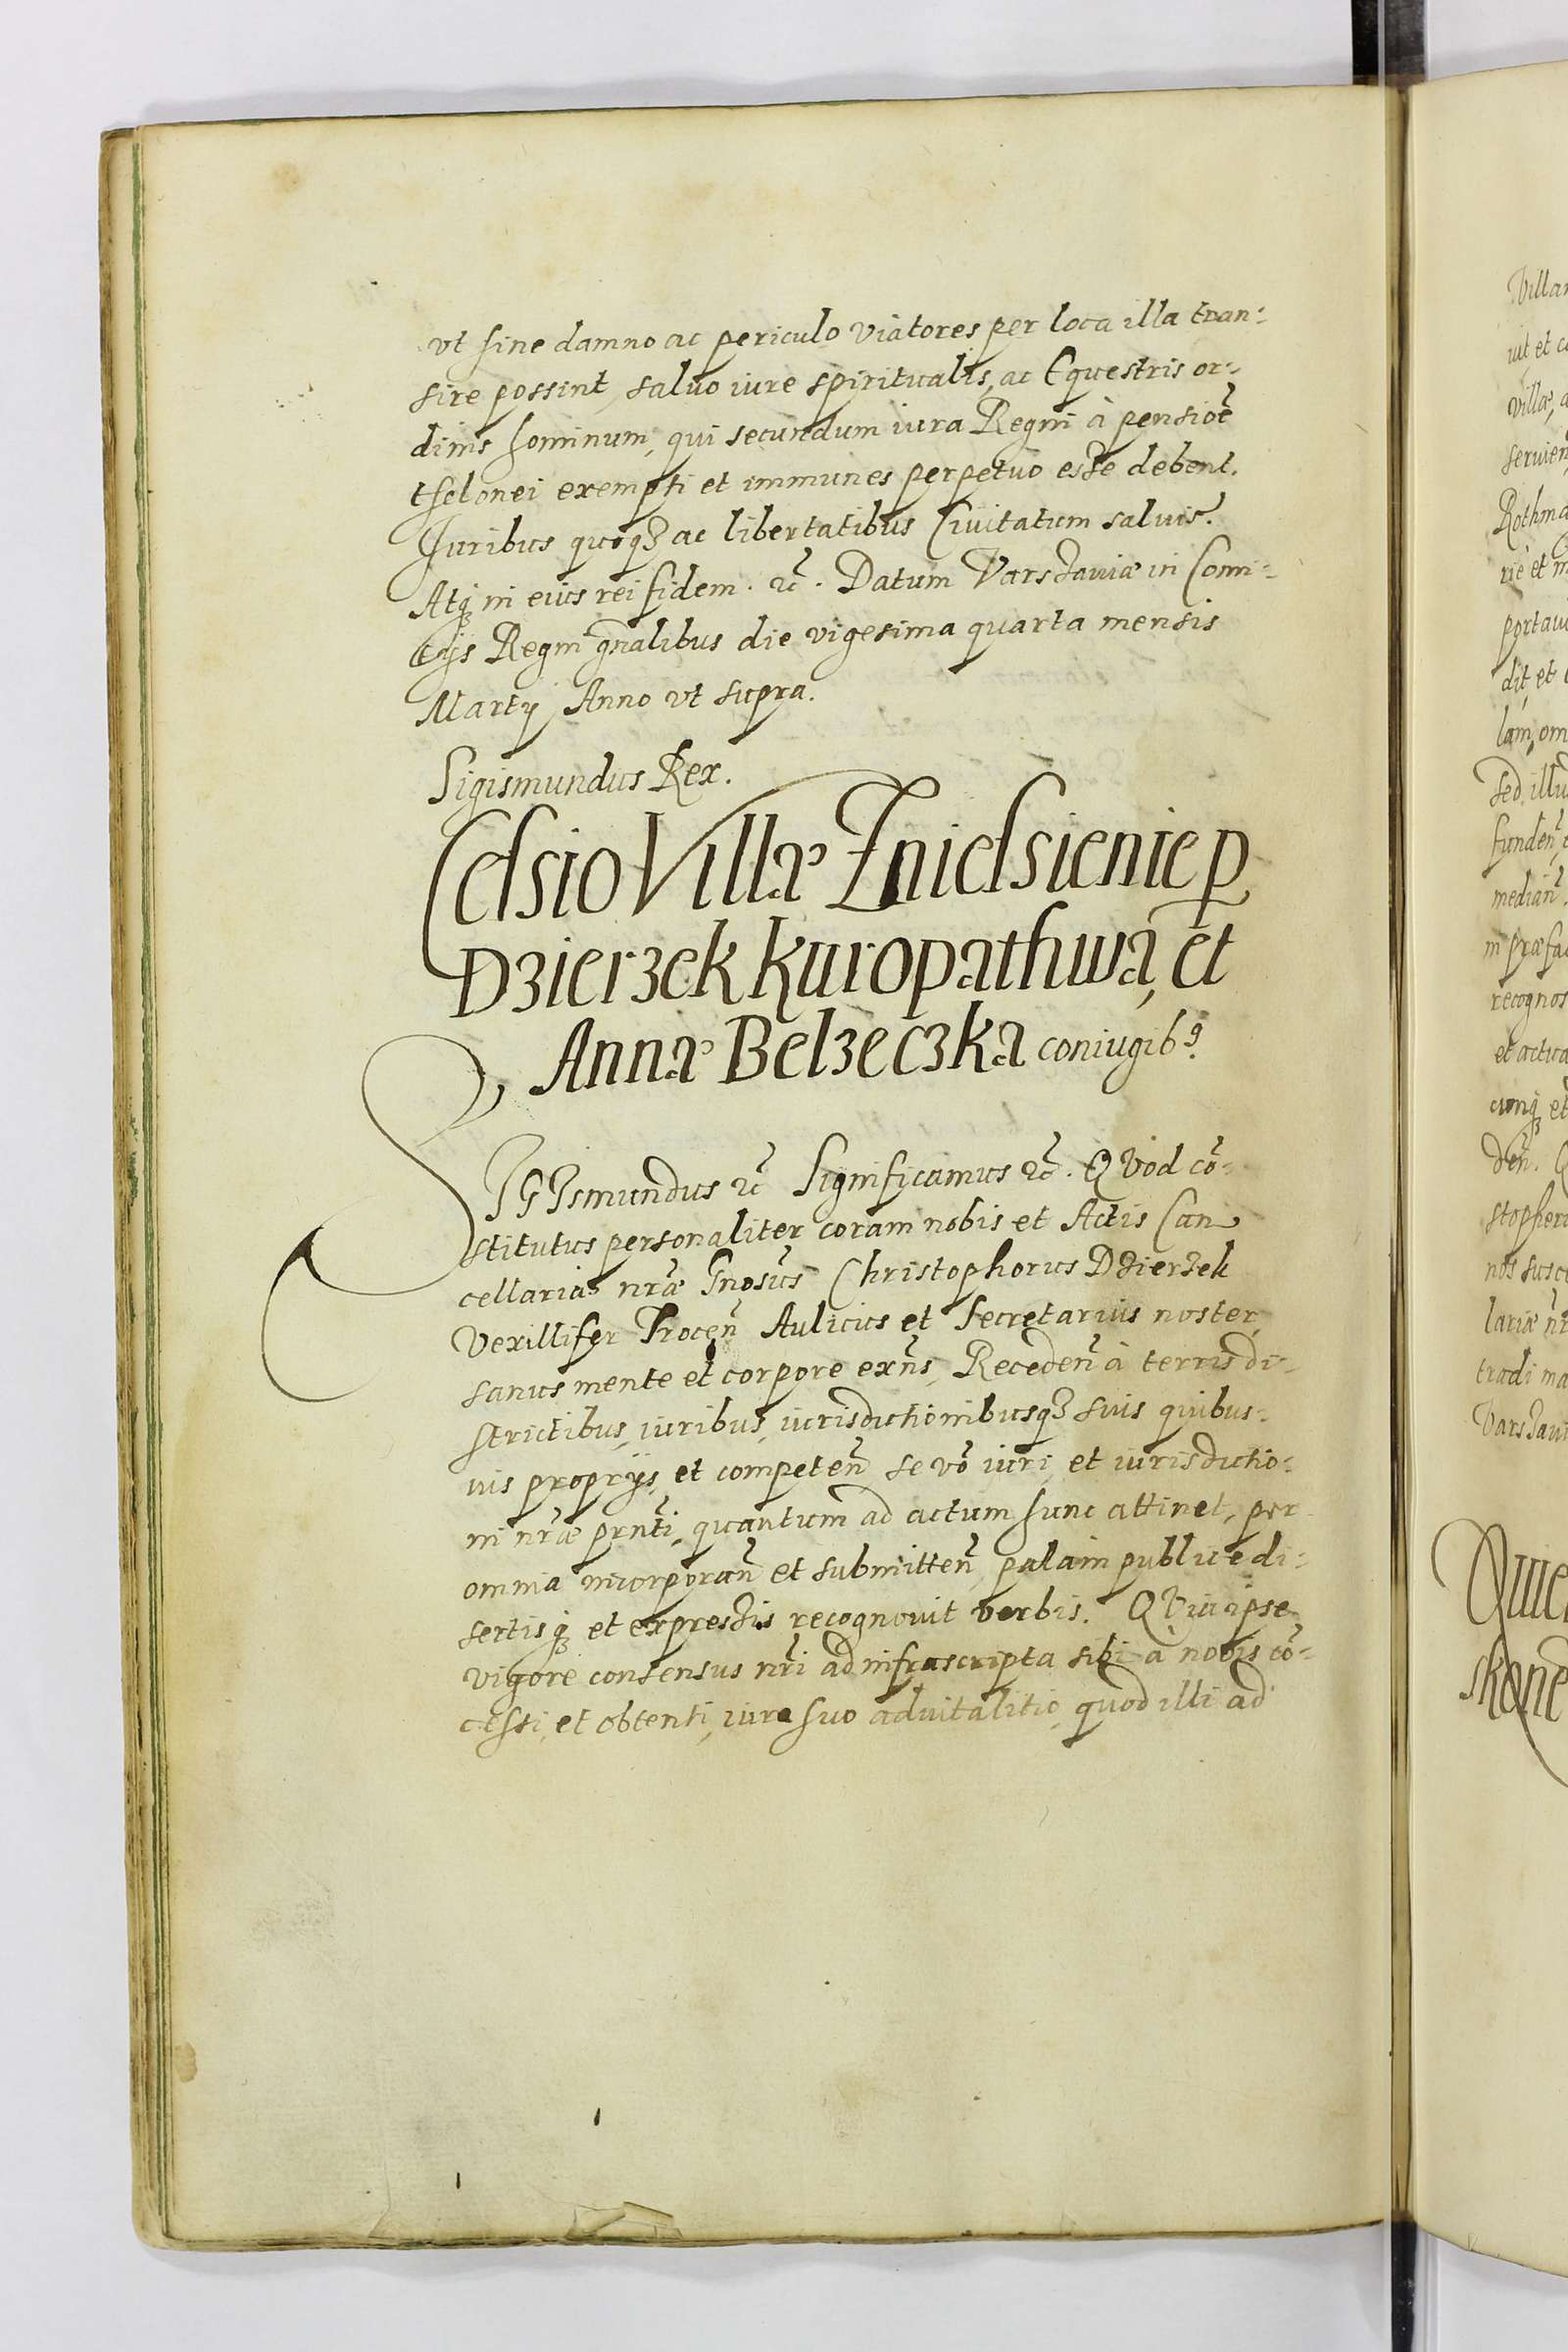 vt sine damno ac periculo viatores per loca illa tran-
sire possint, saluo iure spiritualis, ac Equestris or-
dinis hominum, qui secundum iura Regni à pensiõe
thelonei exempti et immunes perpetuo esse debent.
Juribus quoqꝫ ac libertatibus Ciuitatum saluis.
Atqꝫ in eius rei fidem. ꝛc̃. Datum Varssauiæ in Comi-
tijs Regni gñalibus die vigesima quarta mensis
Martij Anno vt supra.
Sigismundus Rex.
Cessio Villæ Zniessienie p
Dzierzek Kuropathwa, et
Annæ Belzeczka coniugibꝰ.
SIGIsmundus ꝛc̃ Significamus ꝛc̃. QVod cõ-
stitutus personaliter coram nobis et Actis Can
cellariæ nr̃æ Gnosus Christophorus Dzierzek
Vexillifer Trocen̄ Aulicus et Secretarius noster,
sanus mente et corpore exñs, Receden̄ à terris di-
strictibus, iuribus, iurisdictionibusqꝫ suis quibus-
uis proprijs, et competen̄ se võ iuri, et iurisdictio-
ni nr̃æ prñti, quantum ad actum hunc attinet, per
omnia incorporan̄ et submitten̄ palam publice di-
sertisqꝫ et expressis recognouit verbis. QVia ipse
vigore consensus nr̃i ad infrascripta sibi à nobis cõ-
cessi, et obtenti, iure suo aduitalitio, quod illi ad
Villam
uit et c
villæ, a
seruien̄
Rothma
rie et m
portaui
dit, et
lam, om
sed illu
funden̄,
median̄
in præfa
recognos
et actica
cunqꝫ et
den̄.
stophero
nos susc
lariæ nr̃
tradi ma
Varssaui
Quie
skone